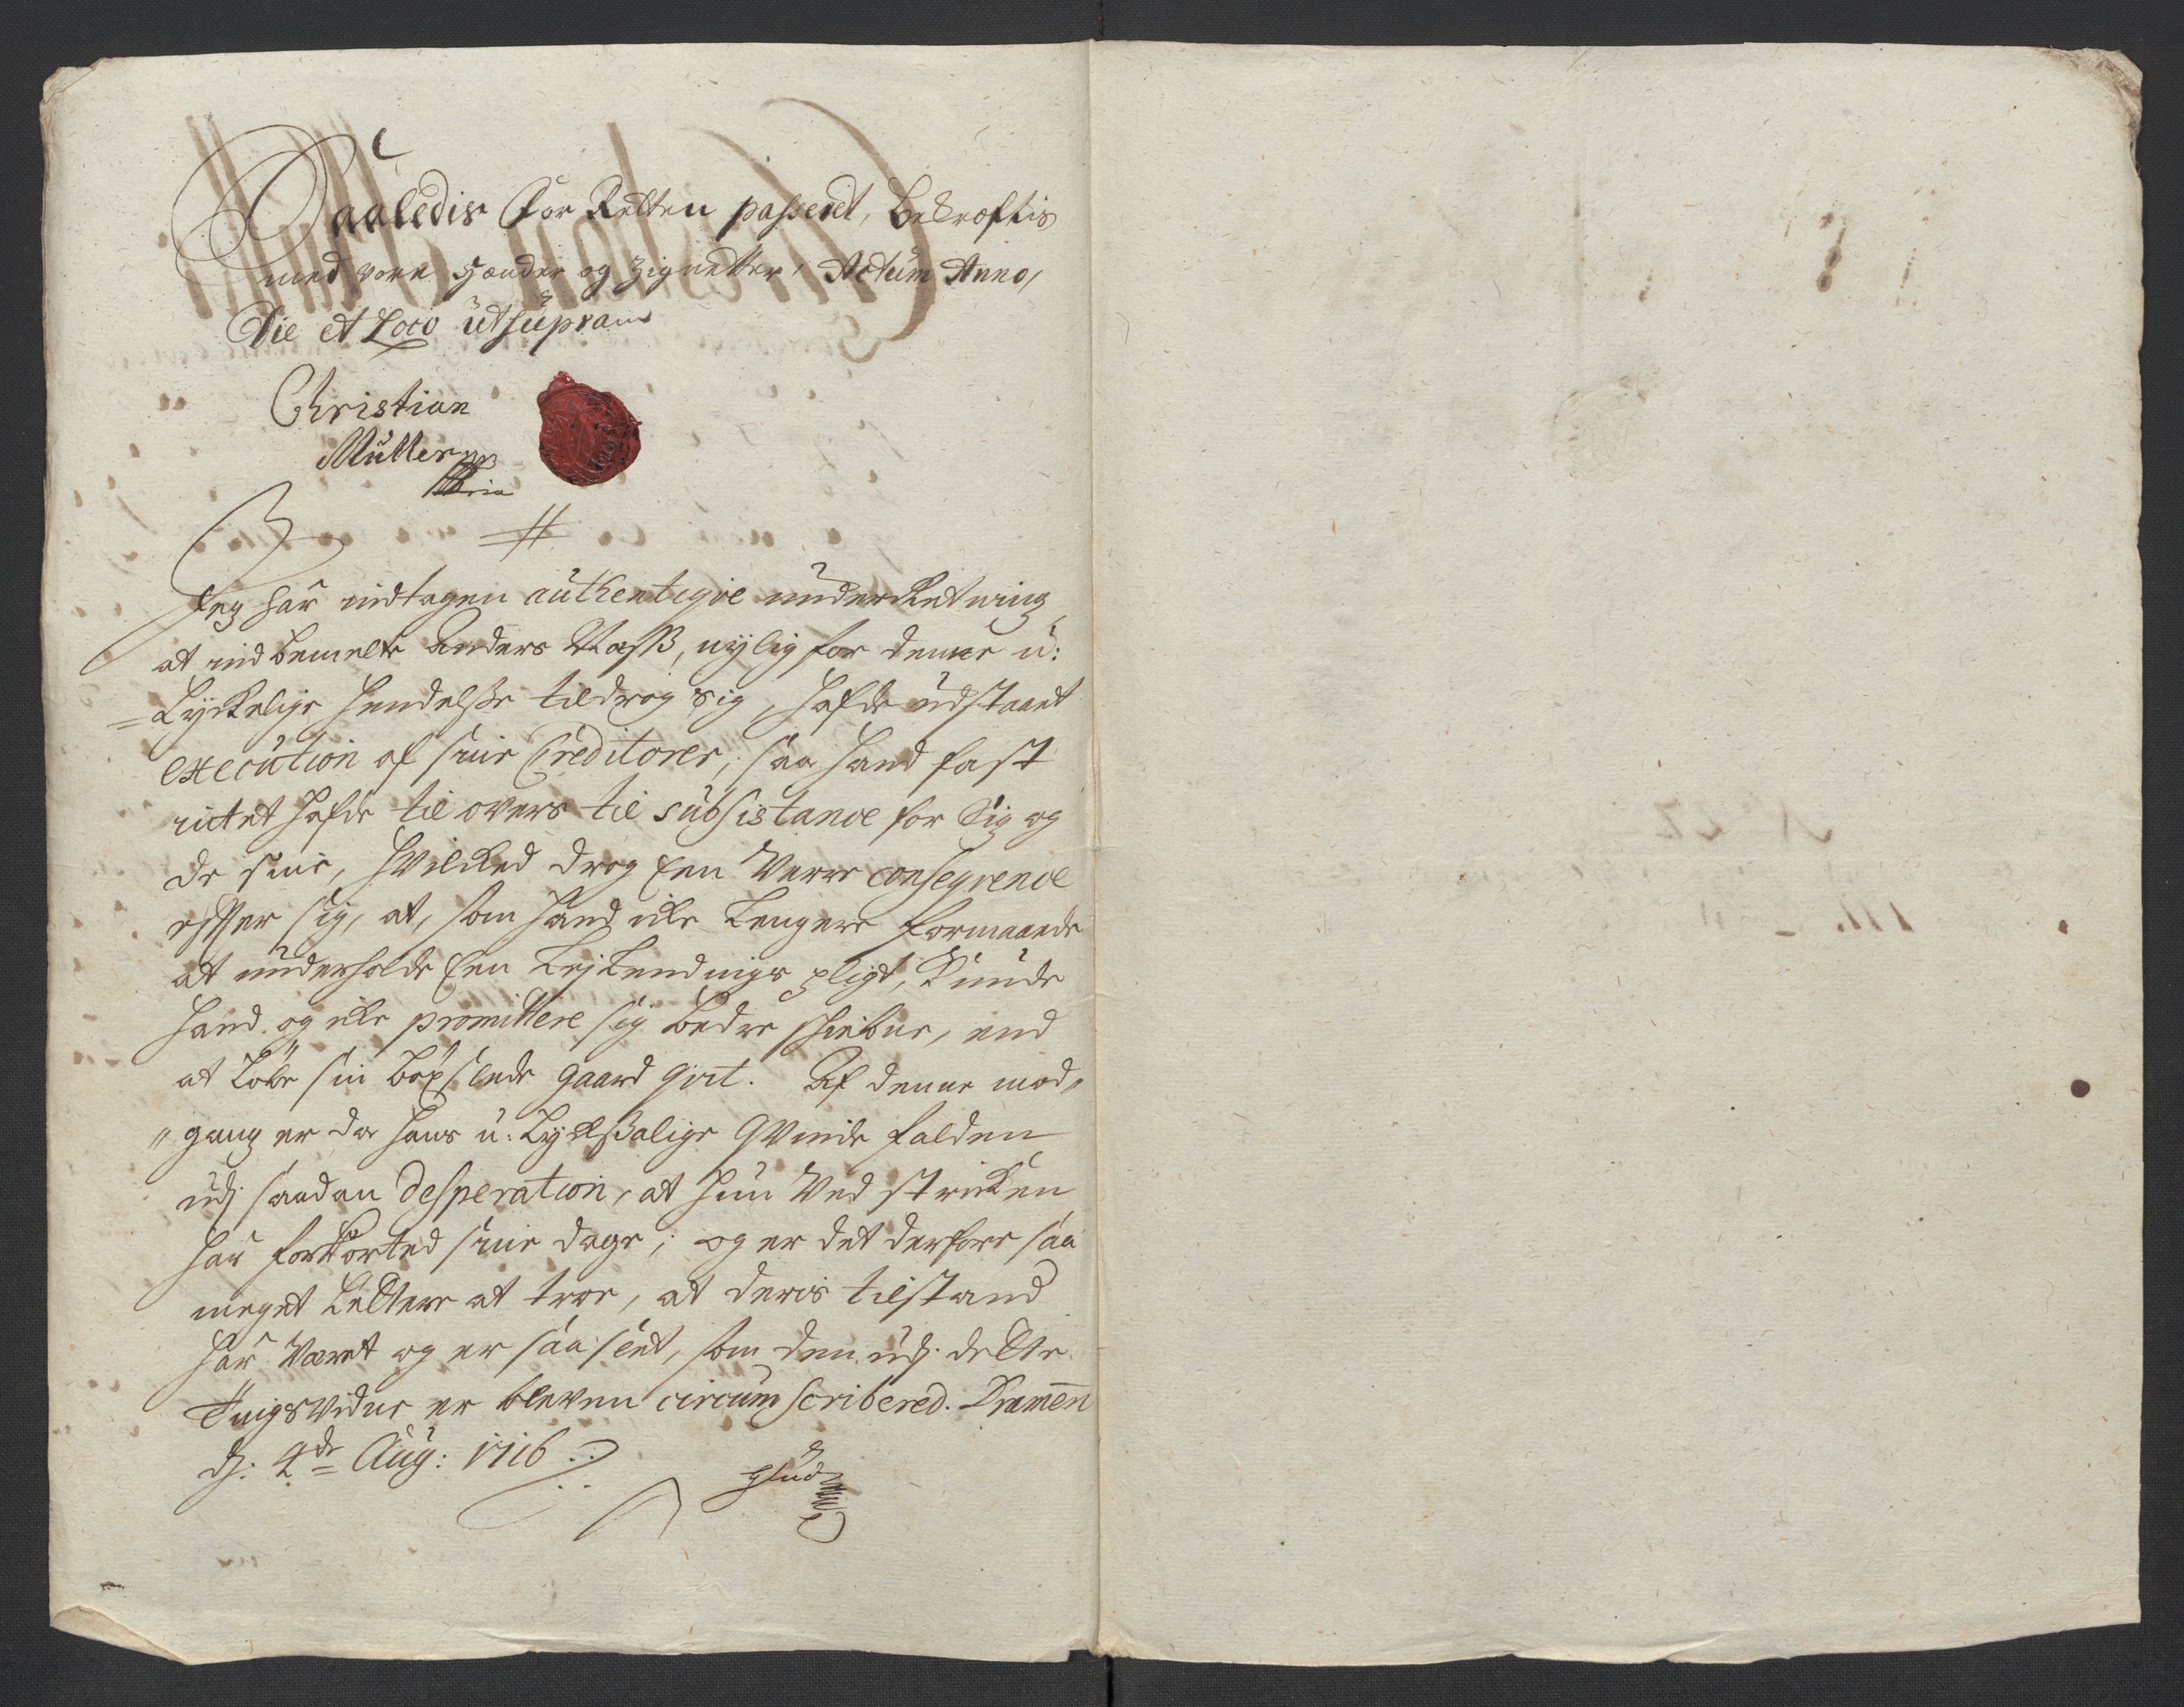 Saaledis For Retten passeret, bekræftis
med vore hænder og Zignetter, Actum Anno,
Die et Loco ut supra
Christian
Muller
Jeg har indtagen authentiqve underRetning
at indbemelte Anders Nass, nylig for denne u:
Lyckelige hendelse tildrog sig, hafde udstaaet
execution af sine Creditorer, saa hand fast
intet hafde til overs til subsistance for Sig og
de sine, hvilcked drog Een Verre conseqvence
effter sig, at, som hand icke Lengere formaaede
at underholde Een Leylendings pligt, kunde
hand og icke promittere sig bedre skiebne, end
at Løbe sin böxlede gaard qvit. Af denne mod„
„gang er da hans u:Lycksalige Qvinde falden
udj saadan desperation, at hun Ved stricken
har forkorted sine dage; og er det derfore saa
meget Lettere at troe, at deris tilstand
har Været og er saa slet, som den udj dette
Tingsvidne er bleven circumscribered. Dramen
dj: 4de Aug: 1716